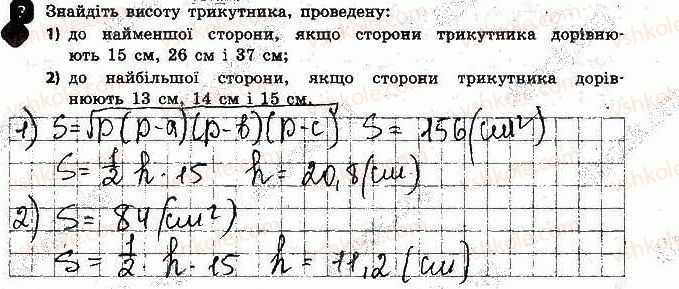 ? Знайдіть висоту трикутника, проведену:
1) до найменшої сторони, якщо сторони трикутника дорівню-
ють 15 см, 26 см і 37 см;
2) до найбільшої сторони, якщо сторони трикутника дорів-
нюють 13 см, 14 см і 15 см.
1) S=√p(p-a)(p-b)(p-c) S = 156(см²)
S = 1/2 h · 15 h = 20,8(см)
2) S = 84(см²)
S = 1/2 · h · 15 h = 11,2(см)